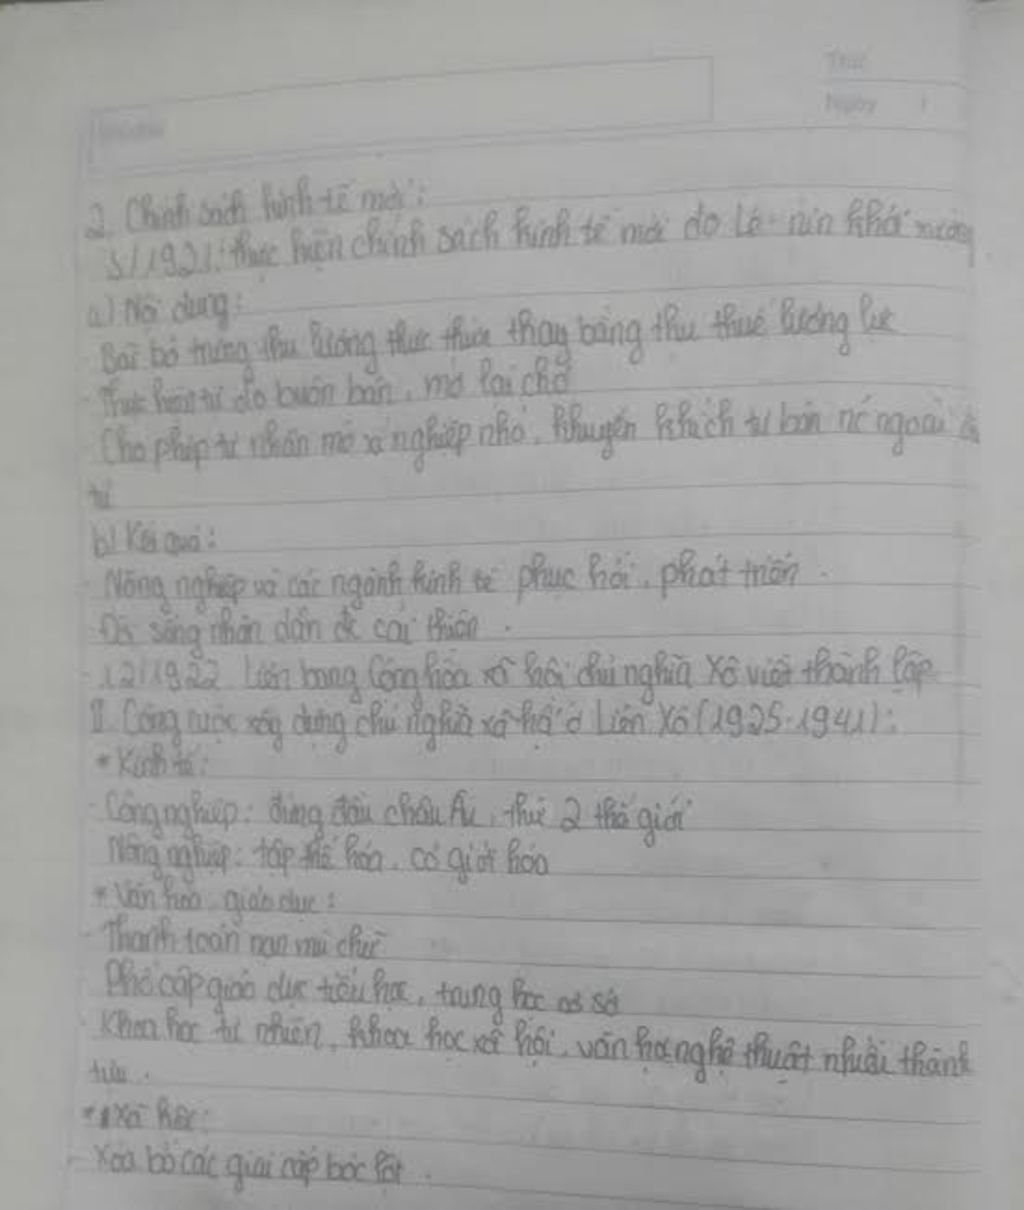 Thứ
Ngày /
2. Chính sách kinh tế mới:
3/1921: thực hiện chính sách kinh tế mới do Lê-nin khởi xướng
a) Nội dung:
Bãi bỏ trưng thu lương thực thừa thay bằng thu thuế lương lực
- Thực hiện tự do buôn bán, mở lại chợ
- Cho phép tư nhân mở xí nghiệp nhỏ, khuyến khích tư bản nc ngoài
tư
b) Kết quả:
- Nông nghiệp và các ngành kinh tế phục hồi, phát triển.
- Đời sống nhân dân đc cải thiện.
- 12/1922 Liên bang Cộng hòa xã hội chủ nghĩa Xô viết thành lập
II. Công cuộc xây dựng chủ nghĩa xã hội ở Liên Xô (1925-1941):
* Kinh tế:
- Công nghiệp: đứng đầu châu Âu, thứ 2 thế giới
Nông nghiệp: tập thể hóa, cơ giới hóa
* Văn hóa giáo dục:
- Thanh toán nạn mù chữ
Phổ cập giáo dục tiểu học, trung học cơ sở
- Khoa học tự nhiên, khoa học xã hội, văn học nghệ thuật nhiều thành
tựu.
* Xã hội:
- Xóa bỏ các giai cấp bóc lột.